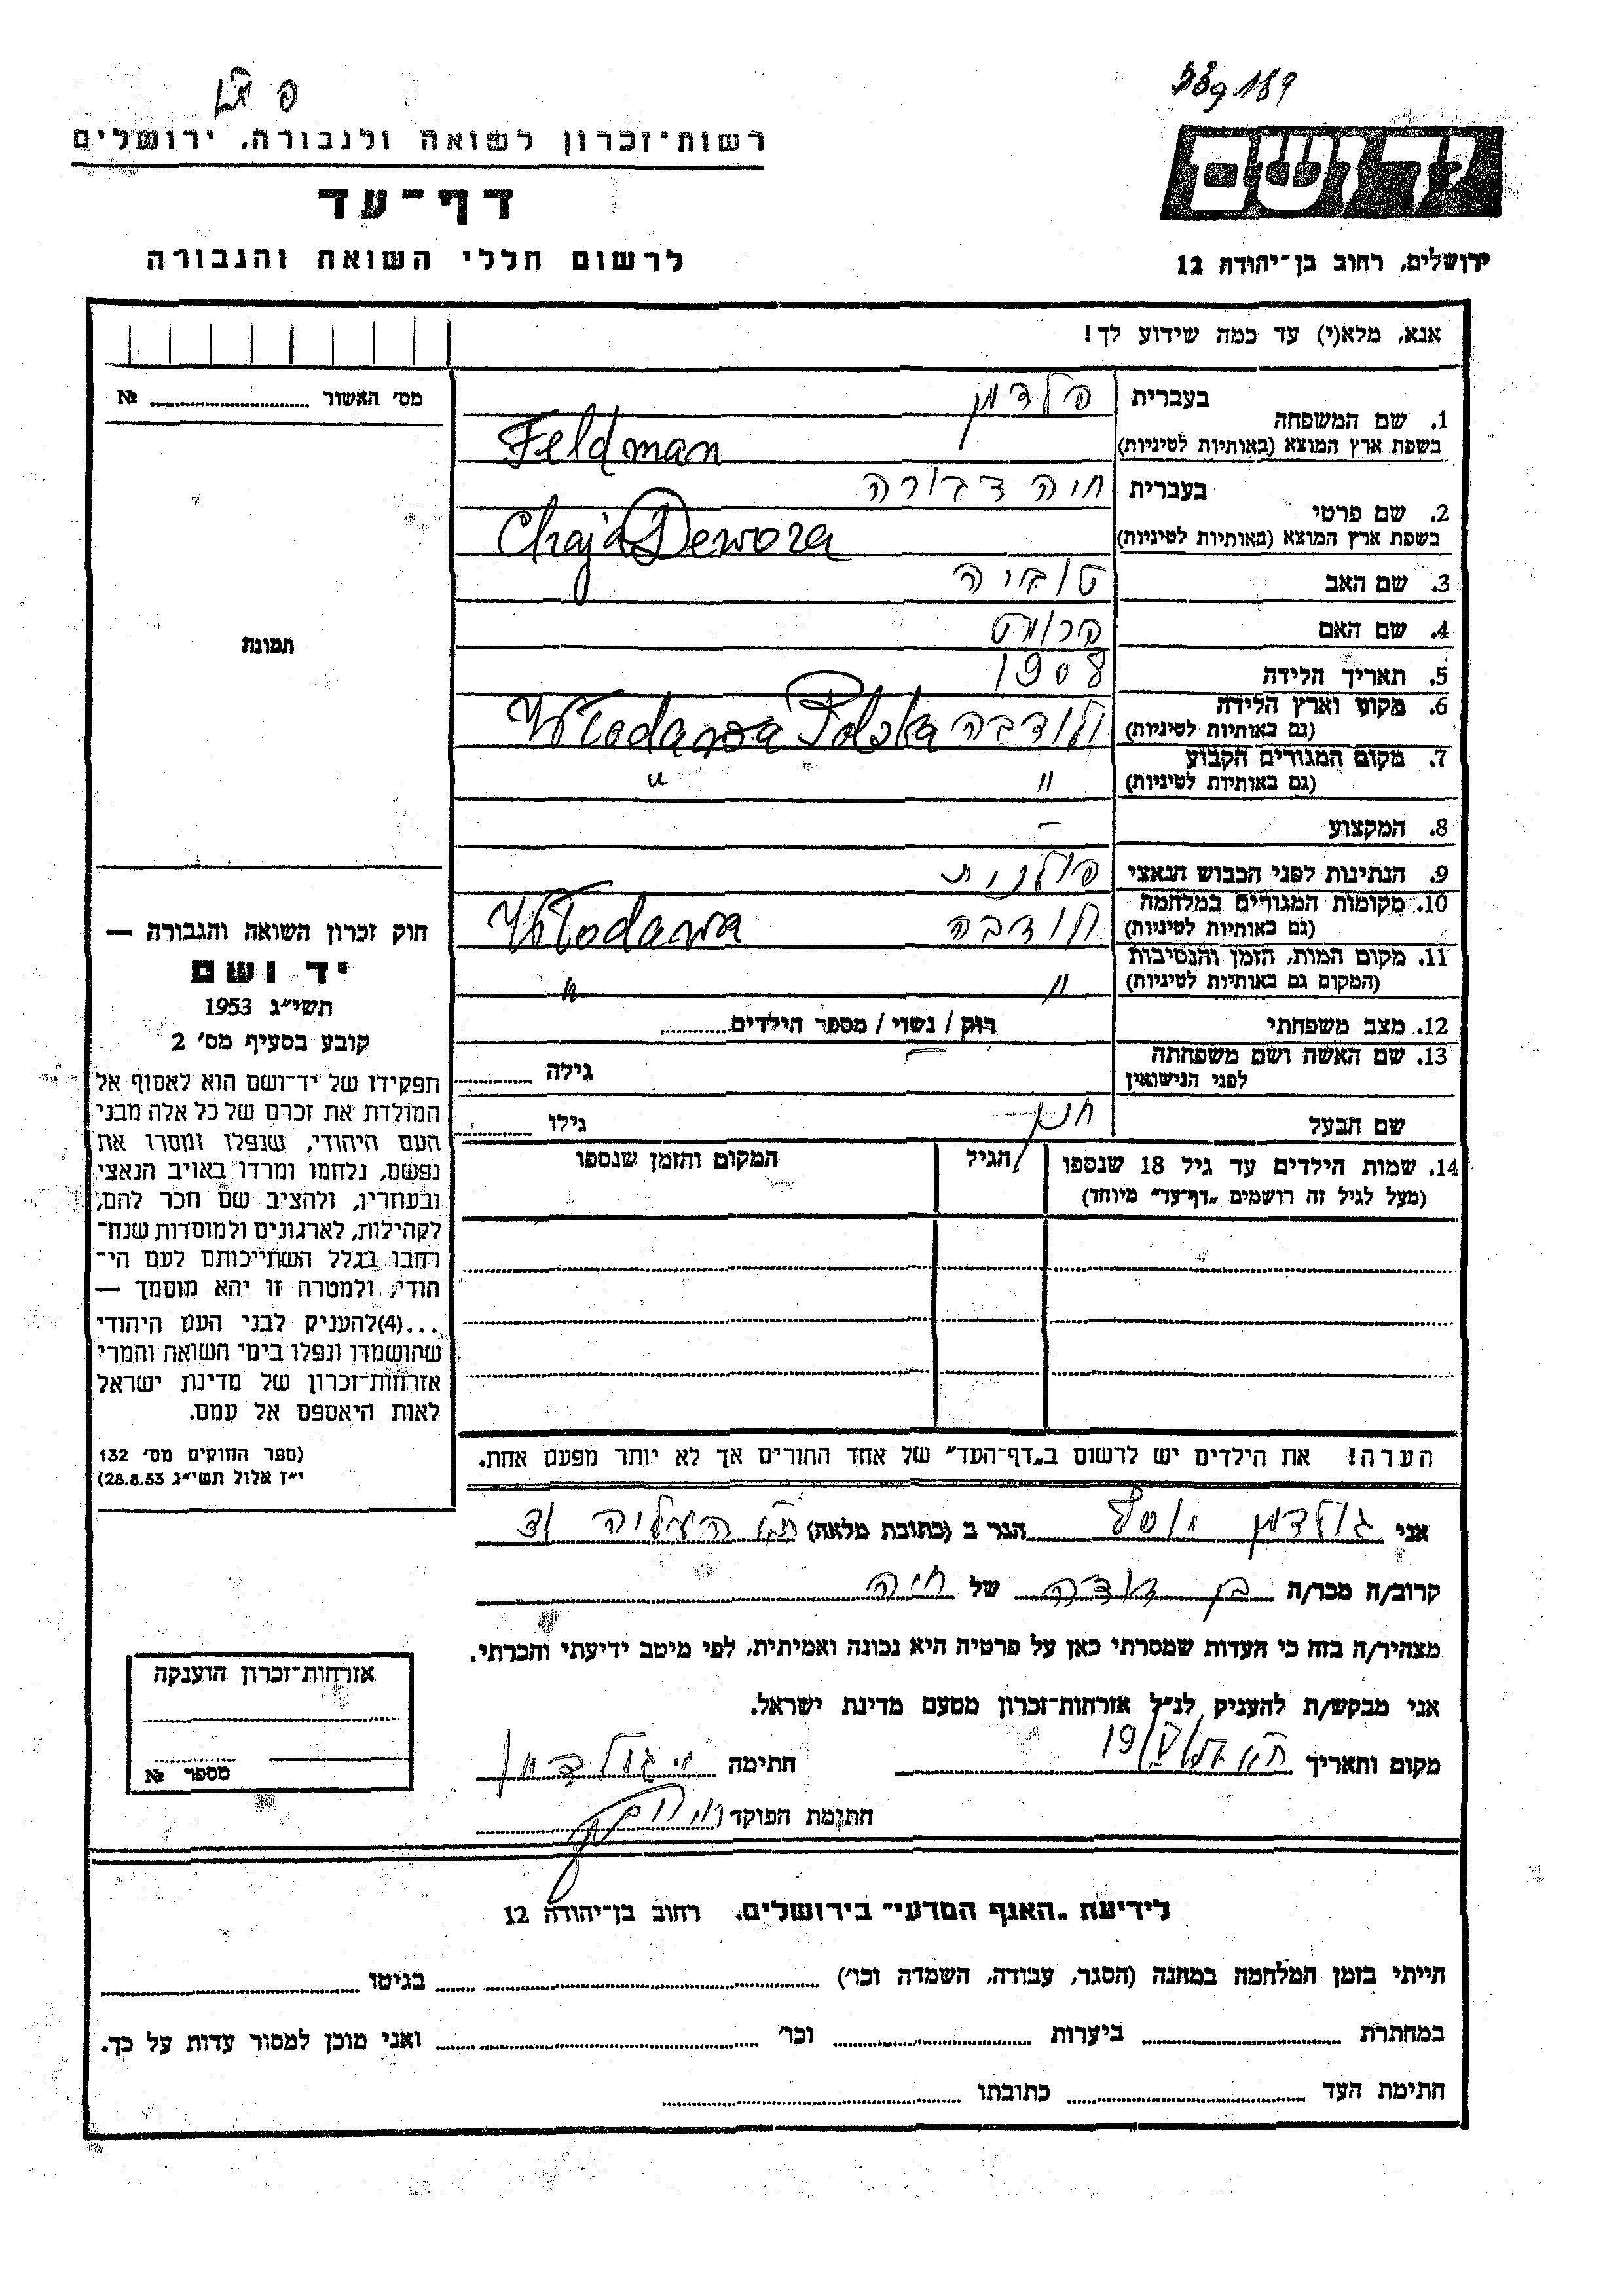 רשות־זכרון לשואה ולגבורה, ירושלים
דף־עד
לרשום חללי השואה והגבורה
יד ושם
ירושלים, רחוב בן־יהודה 12
אנא, מלא(י) עד כמה שידוע לך!
מס׳ האשור № 
1. שם המשפחה בעברית פלדמן
בשפת ארץ המוצא (באותיות לטיניות) Feldman
2. שם פרטי בעברית חיה דבורה
בשפת ארץ המוצא (באותיות לטיניות) Chaja Dewora
3. שם האב טוביה
4. שם האם
5. תאריך הלידה 1908
6. מקום וארץ הלידה
(גם באותיות לטיניות) ולודבה Włodawa Polska
7. מקום המגורים הקבוע
(גם באותיות לטיניות) " "
8. המקצוע –
9. הנתינות לפני הכבוש הנאצי פולנית
10. מקומות המגורים במלחמה
(גם באותיות לטיניות) Włodawa
11. מקום המות, הזמן והנסיבות
(המקום גם באותיות לטיניות) " "
12. מצב משפחתי רוק / נשוי / מספר הילדים
13. שם האשה ושם משפחתה
לפני הנישואין – גילה
שם הבעל חנן גילו
14. שמות הילדים עד גיל 18 שנספו הגיל המקום והזמן שנספו
(מעל לגיל זה רושמים „דף־עד" מיוחד)
הערה! את הילדים יש לרשום ב„דף־העד" של אחד ההורים אך לא יותר מפעם אחת.
תמונה
חוק זכרון השואה והגבורה —
יד ושם
תשי"ג 1953
קובע בסעיף מס׳ 2
תפקידו של יד־ושם הוא לאסוף אל
המולדת את זכרם של כל אלה מבני
העם היהודי, שנפלו ומסרו את
נפשם, נלחמו ומרדו באויב הנאצי
ובעוזריו, ולהציב שם וזכר להם,
לקהילות, לארגונים ולמוסדות שנח־
רבו בגלל השתייכותם לעם הי־
הודי, ולמטרה זו יהא מוסמך —
...(4)להעניק לבני העם היהודי
שהושמדו ונפלו בימי השואה והמרי
אזרחות־זכרון של מדינת ישראל
לאות היאספם אל עמם.
(ספר החוקים מס׳ 132
י"ז אלול תשי"ג 28.8.53)
אני גולדמן יוסף הגר ב (כתובת מלאה) העליה
קרוב/ה מכר/ה בן דודה של חיה
מצהיר/ה בזה כי העדות שמסרתי כאן על פרטיה היא נכונה ואמיתית, לפי מיטב ידיעתי והכרתי.
אני מבקש/ת להעניק לנ"ל אזרחות־זכרון מטעם מדינת ישראל.
מקום ותאריך חתימה י גולדמן
חתימת הפוקד
אזרחות־זכרון הוענקה
מספר №
לידיעת „האגף המדעי" בירושלים, רחוב בן־יהודה 12
הייתי בזמן המלחמה במחנה (הסגר, עבודה, השמדה וכו׳) בגיטו
במחתרת ביערות וכו׳ ואני מוכן למסור עדות על כך.
חתימת העד כתובתו